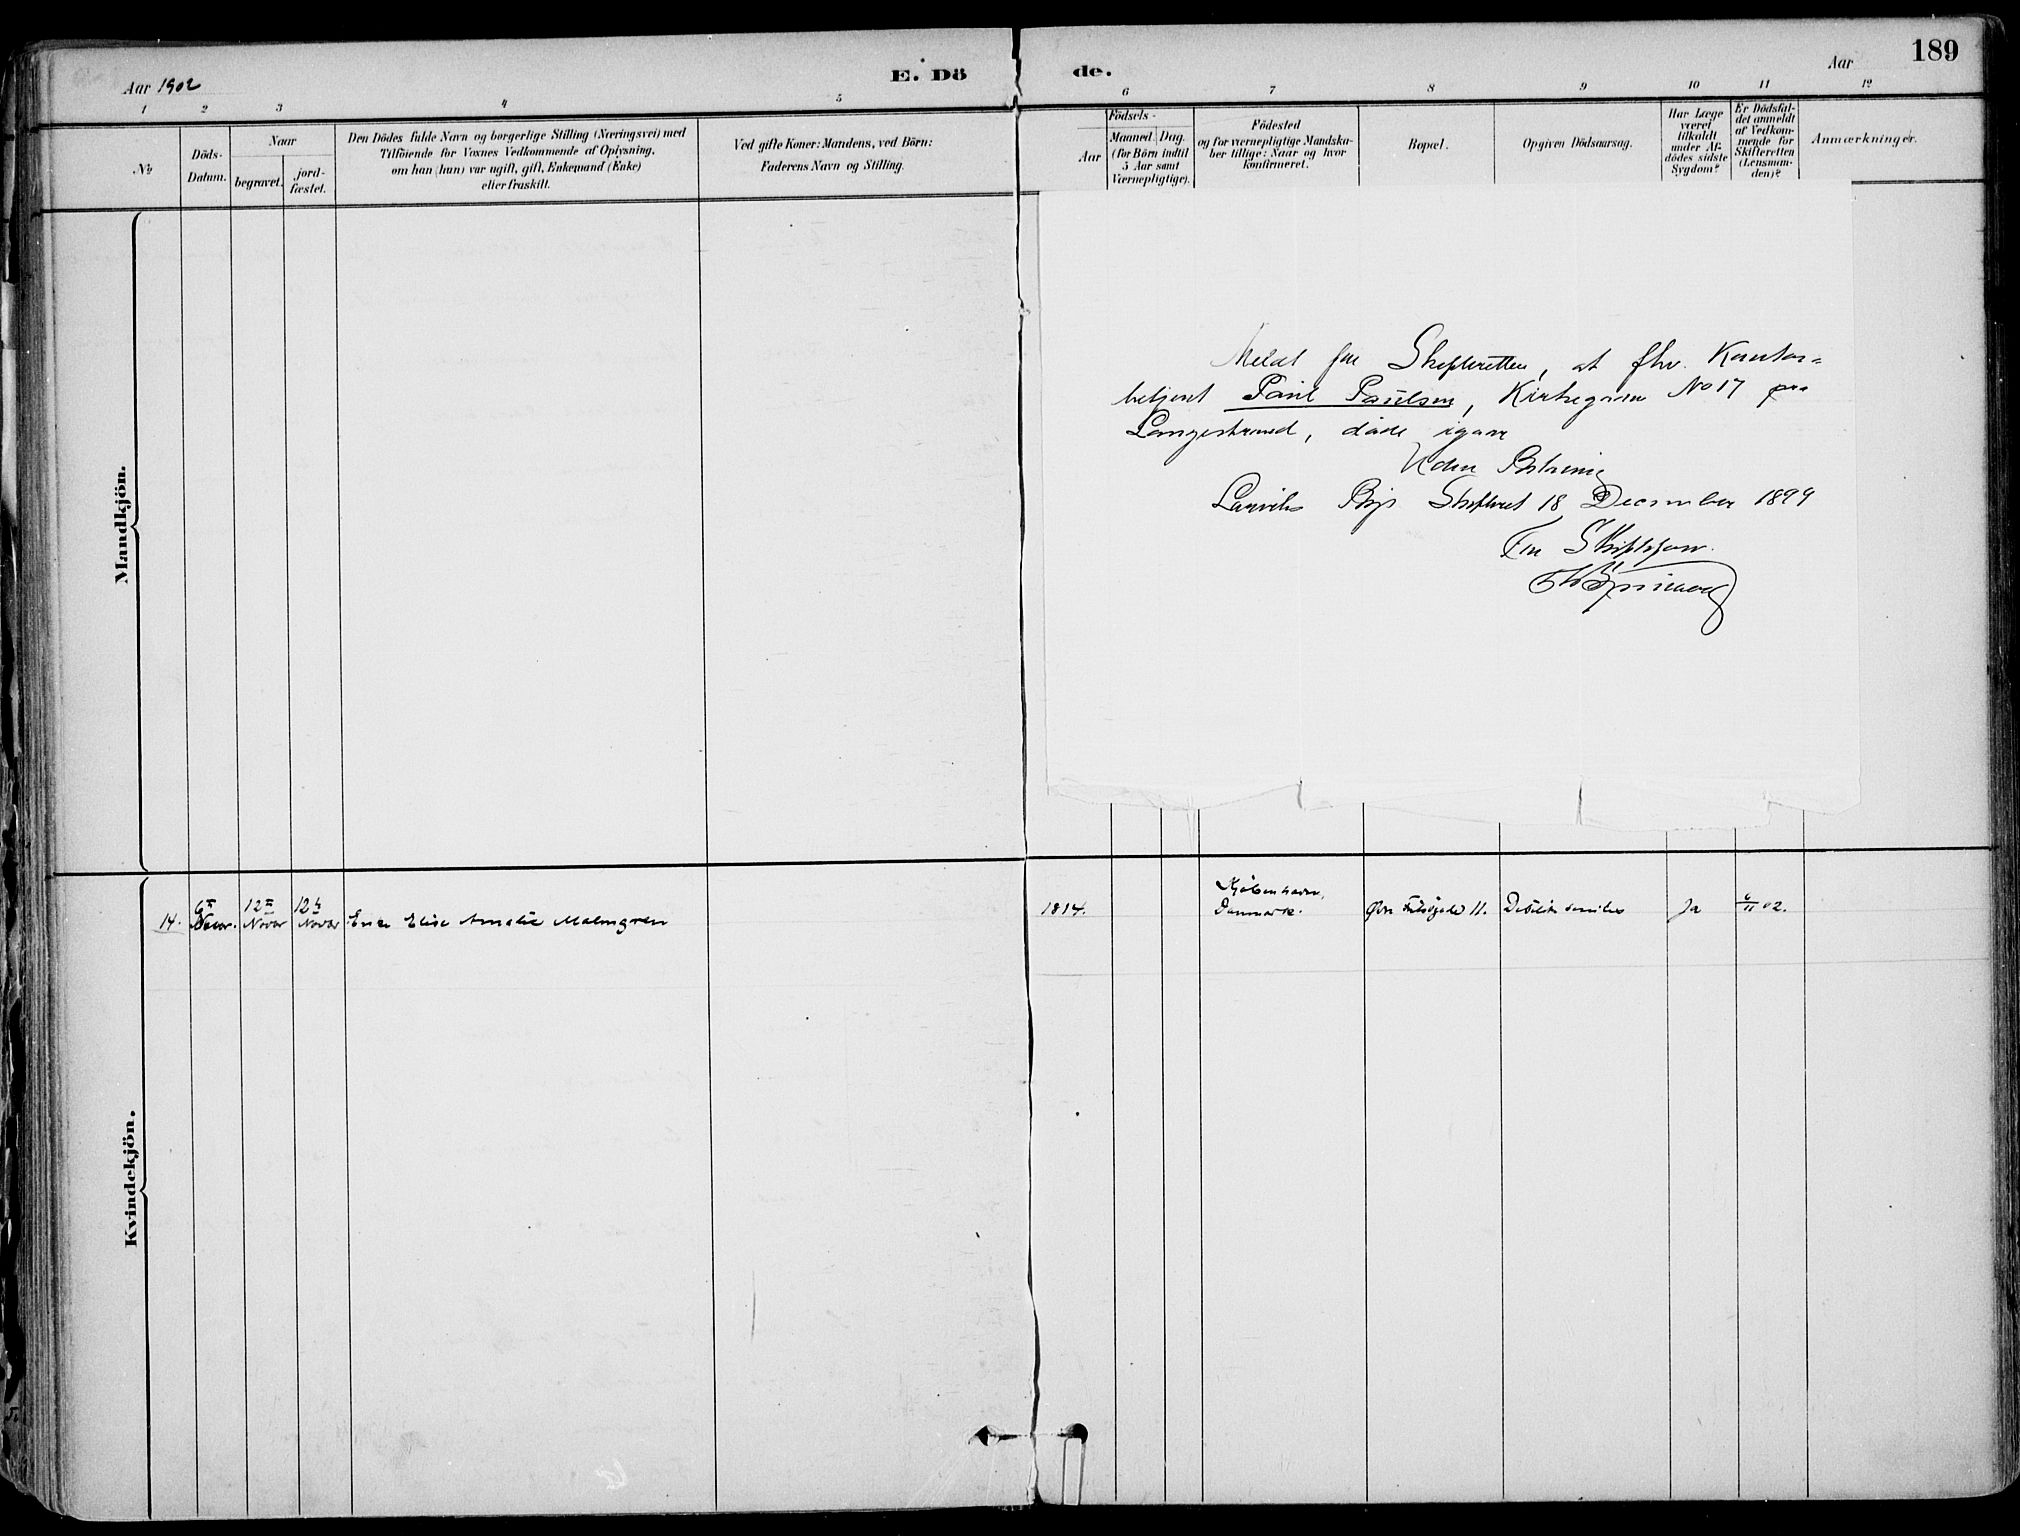 Aar 1902
E. Dö
de.
Aar
189
1
2
3
4
5
6
7
8
9
10
11
12
No
Döds-
Datum.
Naar
begravet.
jord-
fæstet.
Den Dödes fulde Navn og borgerlige Stilling (Næringsvei) med
Tilföiende for Voxnes Vedkommende af Oplysning,
om han (hun) var ugift, gift, Enkemand (Enke)
eller fraskilt.
Ved gifte Koner: Mandens, ved Börn:
Faderens Navn og Stilling.
Födsels-
Aar
Maaned.
Dag.
(for Börn indtil
5 Aar samt
Værnepligtige).
Födested
og for værnepligtige Mandska-
ber tillige: Naar og hvor
konfirmeret.
Bopæl.
Opgiven Dödsaarsag.
Har Læge
været
tilkaldt
under Af-
dödes sidste
Sygdom?
Er Dödsfal-
det anmeldt
af Vedkom-
mende for
Skifteretten
(Lensman-
den)?
Anmærkninger.
Mandkjön.
Meldt for Skifteretten, at fhv. Kontor=
betjent Paul Paulsen, Kirkegaden No 17 paa
Langestrand, døde igaar
Uden
Laurviks Byes Skifteret 18 December 1899
For Skifteforv.
Kvindekjön.
14.
6te
Novbr.
12te
Novbr
12te
Novbr
Enke Elise Amalie Malmgren
1814.
Kjöbenhavn,
Danmark.
Øvre 11.
Debilitas senilis
Ja
6/11 02.